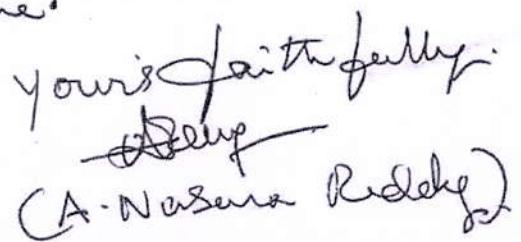 your's faithfully.
(A. Narsava Reddy)